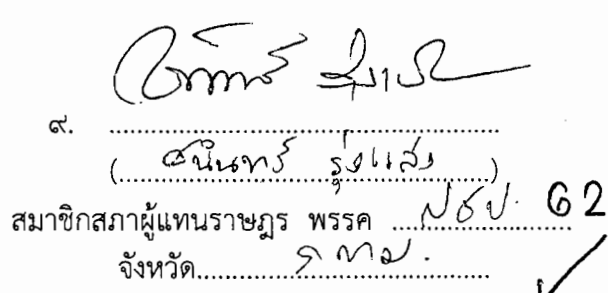 ๙. ..........................................................
(ธนินทร์ รุ่งแสง)
สมาชิกสภาผู้แทนราษฎร พรรค ปชป. 62
จังหวัด กทม.